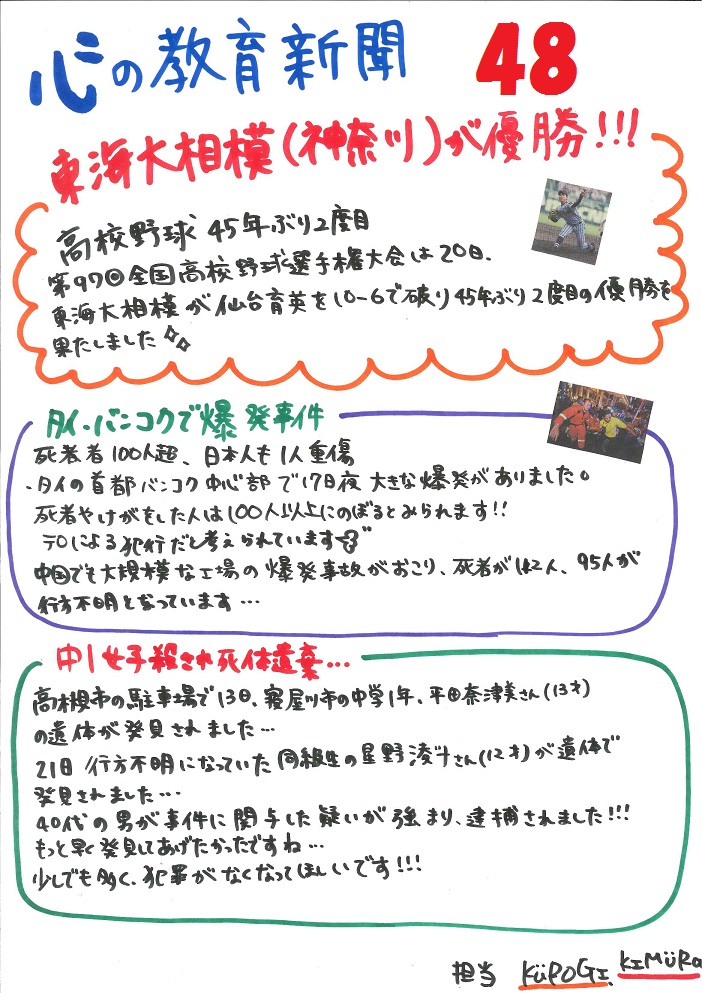 心の教育新聞 48
東海大相模(神奈川)が優勝!!!
高校野球 45年ぶり2度目
第97回全国高校野球選手権大会は20日、
東海大相模が仙台育英を10-6で破り45年ぶり2度目の優勝を
果たしました
タイ・バンコクで爆発事件
死者者100人超、日本人も1人重傷
・タイの首都バンコク中心部で17日夜大きな爆発がありました。
死者やけがをした人は100人以上にのぼるとみられます!!
テロによる犯行だと考えられています
中国でも大規模な工場の爆発事故がおこり、死者が112人、95人が
行方不明となっています…
中1女子殺され死体遺棄…
高槻市の駐車場で13日、寝屋川市の中学1年、平田奈津美さん(13才)
の遺体が発見されました…
21日 行方不明になっていた同級生の星野凌斗さん(12才)が遺体で
発見されました…
40代の男が事件に関与した疑いが強まり、逮捕されました!!!
もっと早く発見してあげたかったですね…
少しでも多く、犯罪がなくなってほしいです!!!
担当 KÜROGI. KIMÜRa